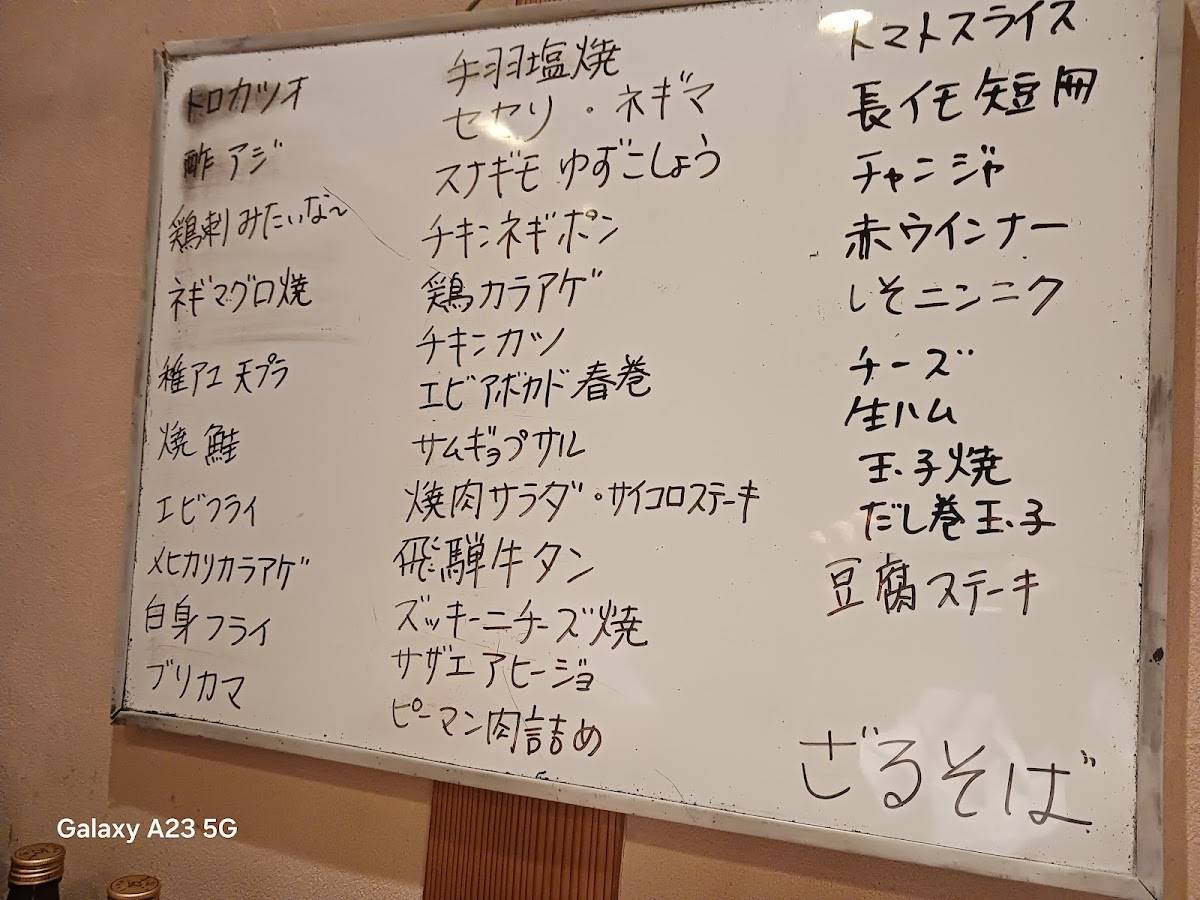 トロカツオ
酢アジ
鶏刺みたいな〜
ネギマグロ焼
稚アユ天プラ
焼鮭
エビフライ
メヒカリカラアゲ
自身フライ
ブリカマ
手羽塩焼
セセリ・ネギマ
スナギモゆずこしょう
チキンネギポン
鶏カラアゲ
チキンカツ
エビアボカド春巻
サムギョプサル
焼肉サラダ・サイコロステーキ
飛騨牛タン
ズッキーニチーズ焼
サザエアヒージョ
ピーマン肉詰め
トマトスライス
長イモ短冊
チャンジャ
赤ウインナー
しそニンニク
チーズ
生ハム
玉子焼
だし巻玉子
豆腐ステーキ
ざるそば
Galaxy A23 5G